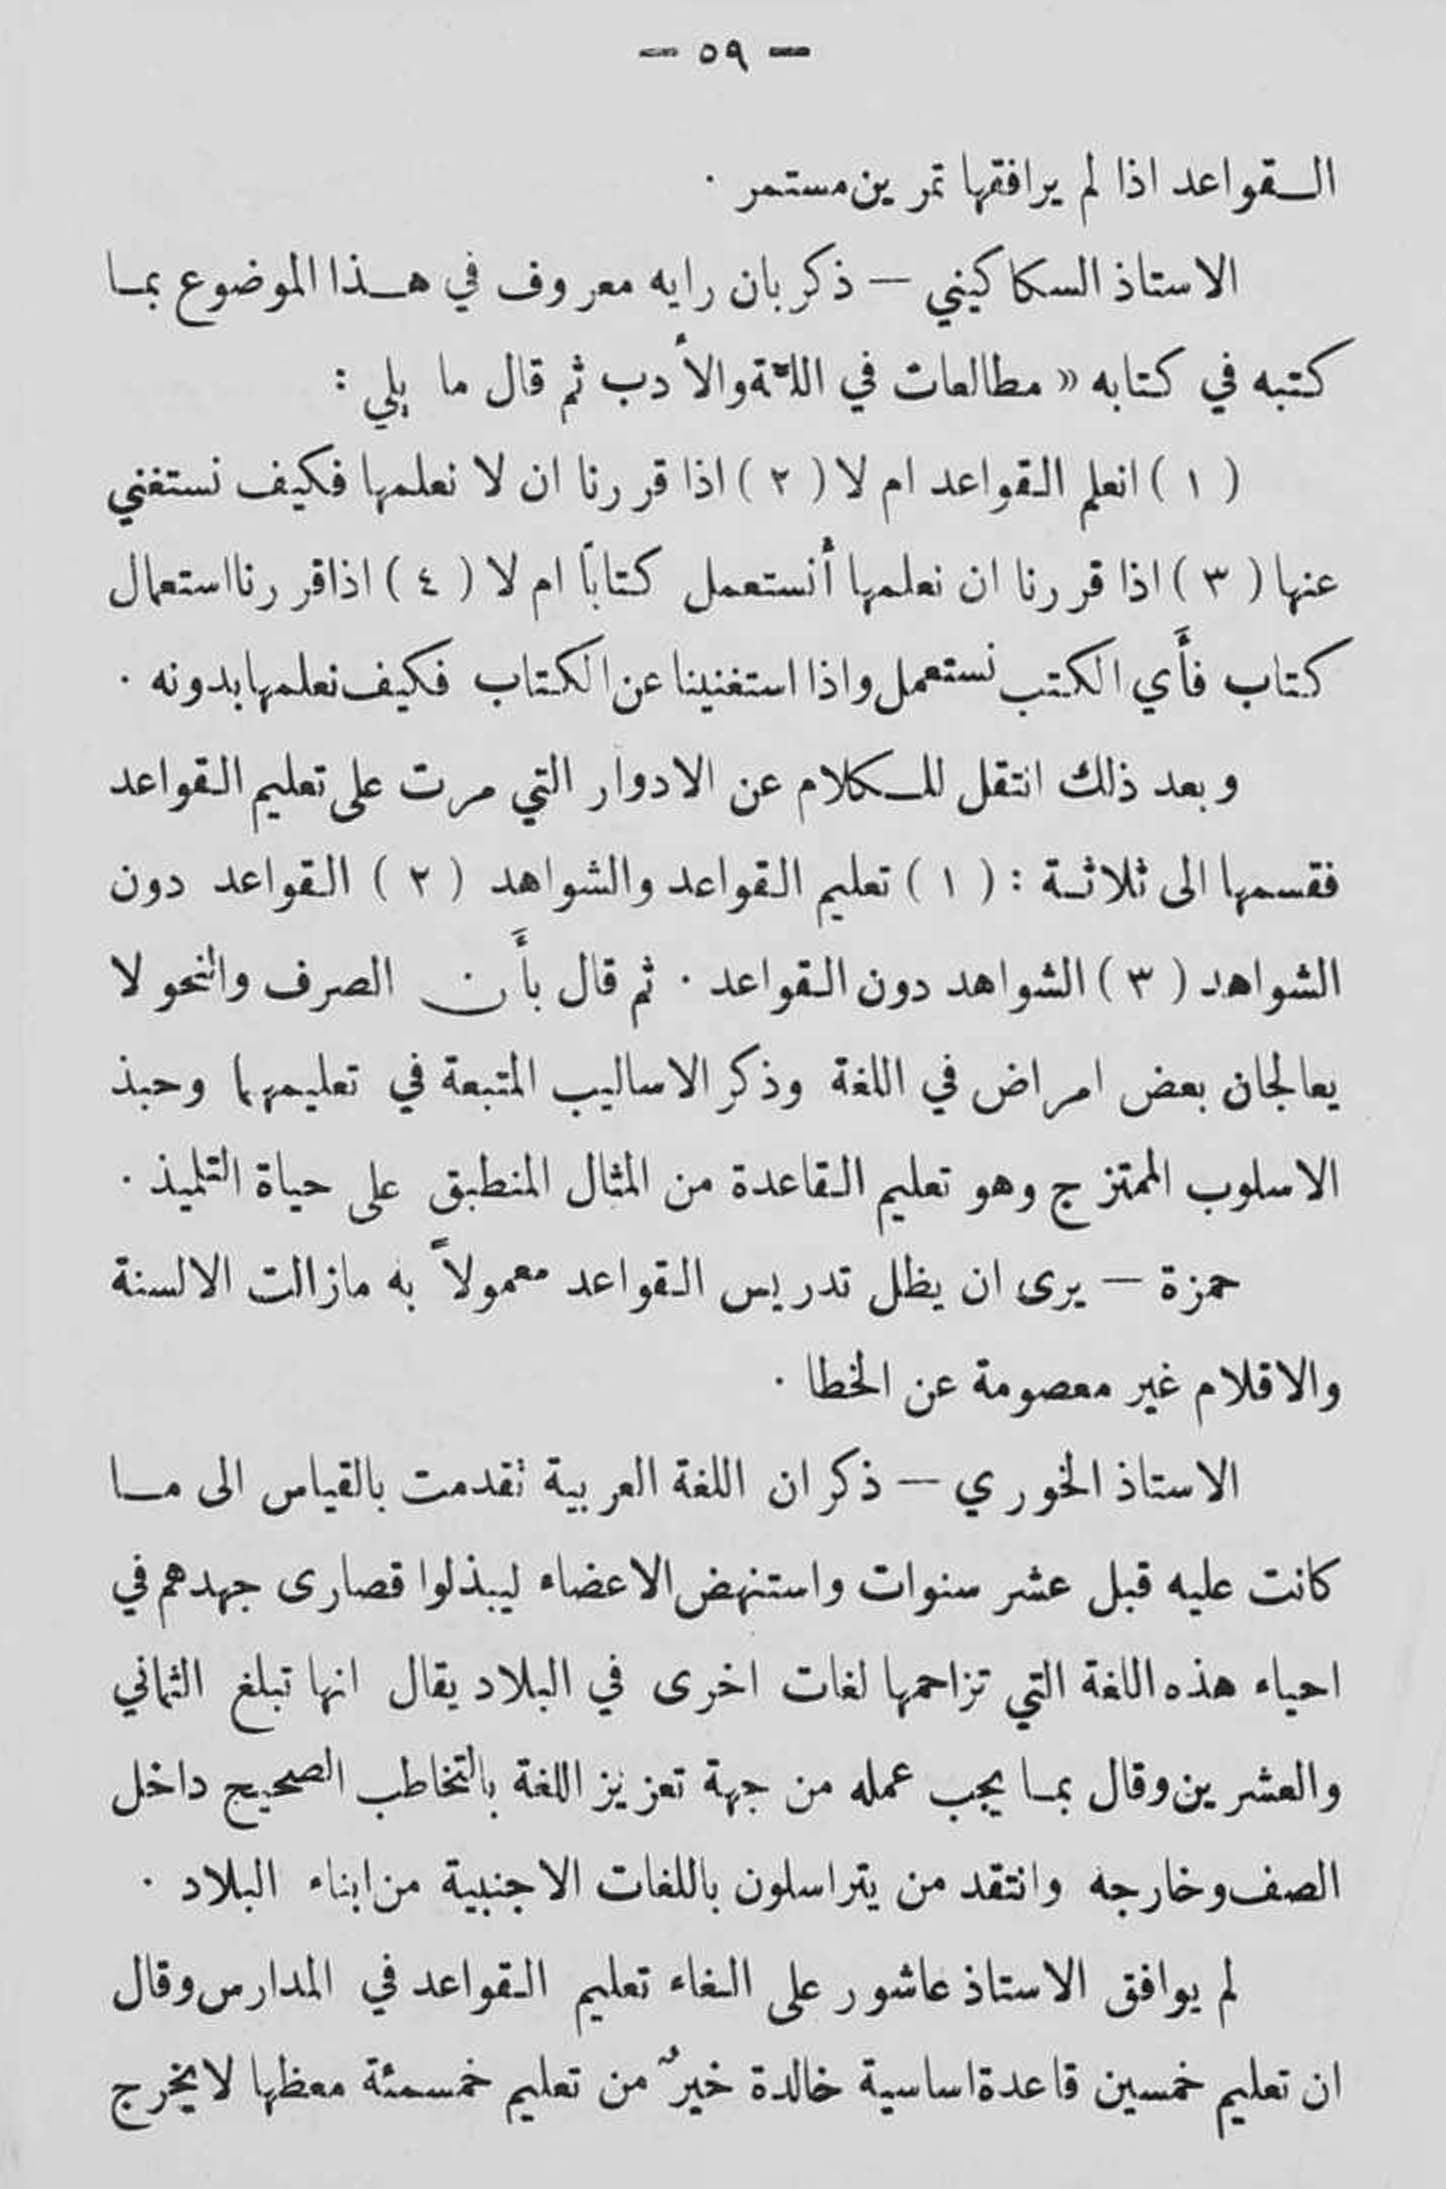 — ٥٩ —
القواعد اذا لم يرافقها تمرين مستمر .
الاستاذ السكاكيني — ذكر بان رايه معروف في هذا الموضوع بما
كتبه في كتابه « مطالعات في اللغة والأدب ثم قال ما يلي :
( ١ ) انعلم القواعد ام لا ( ٢ ) اذا قررنا ان لا نعلمها فكيف نستغني
عنها ( ٣ ) اذا قررنا ان نعلمها أنستعمل كتاباً ام لا ( ٤ ) اذا قررنا استعمال
كتاب فأَي الكتب نستعمل واذا استغنينا عن الكتاب فكيف نعلمها بدونه .
وبعد ذلك انتقل للكلام عن الادوار التي مرت على تعليم القواعد
فقسمها الى ثلاثة : ( ١ ) تعليم القواعد والشواهد ( ٢ ) القواعد دون
الشواهد ( ٣ ) الشواهد دون القواعد . ثم قال بأَن الصرف والنحو لا
يعالجان بعض امراض في اللغة وذكر الاساليب المتبعة في تعليمهما وحبذ
الاسلوب الممتزج وهو تعليم القاعدة من المثال المنطبق على حياة التلميذ .
حمزة — يرى ان يظل تدريس القواعد معمولاً به مازالت الالسنة
والاقلام غير معصومة عن الخطا .
الاستاذ الخوري — ذكر ان اللغة العربية تقدمت بالقياس الى ما
كانت عليه قبل عشر سنوات واستنهض الاعضاء ليبذلوا قصارى جهدهم في
احياء هذه اللغة التي تزاحمها لغات اخرى في البلاد يقال انها تبلغ الثماني
والعشرين وقال بما يجب عمله من جهة تعزيز اللغة بالتخاطب الصحيح داخل
الصف وخارجه وانتقد من يتراسلون باللغات الاجنبية من ابناء البلاد .
لم يوافق الاستاذ عاشور على الغاء تعليم القواعد في المدارس وقال
ان تعليم خمسين قاعدة اساسية خالدة خيرٌ من تعليم خمسمئة معظها لا يخرج